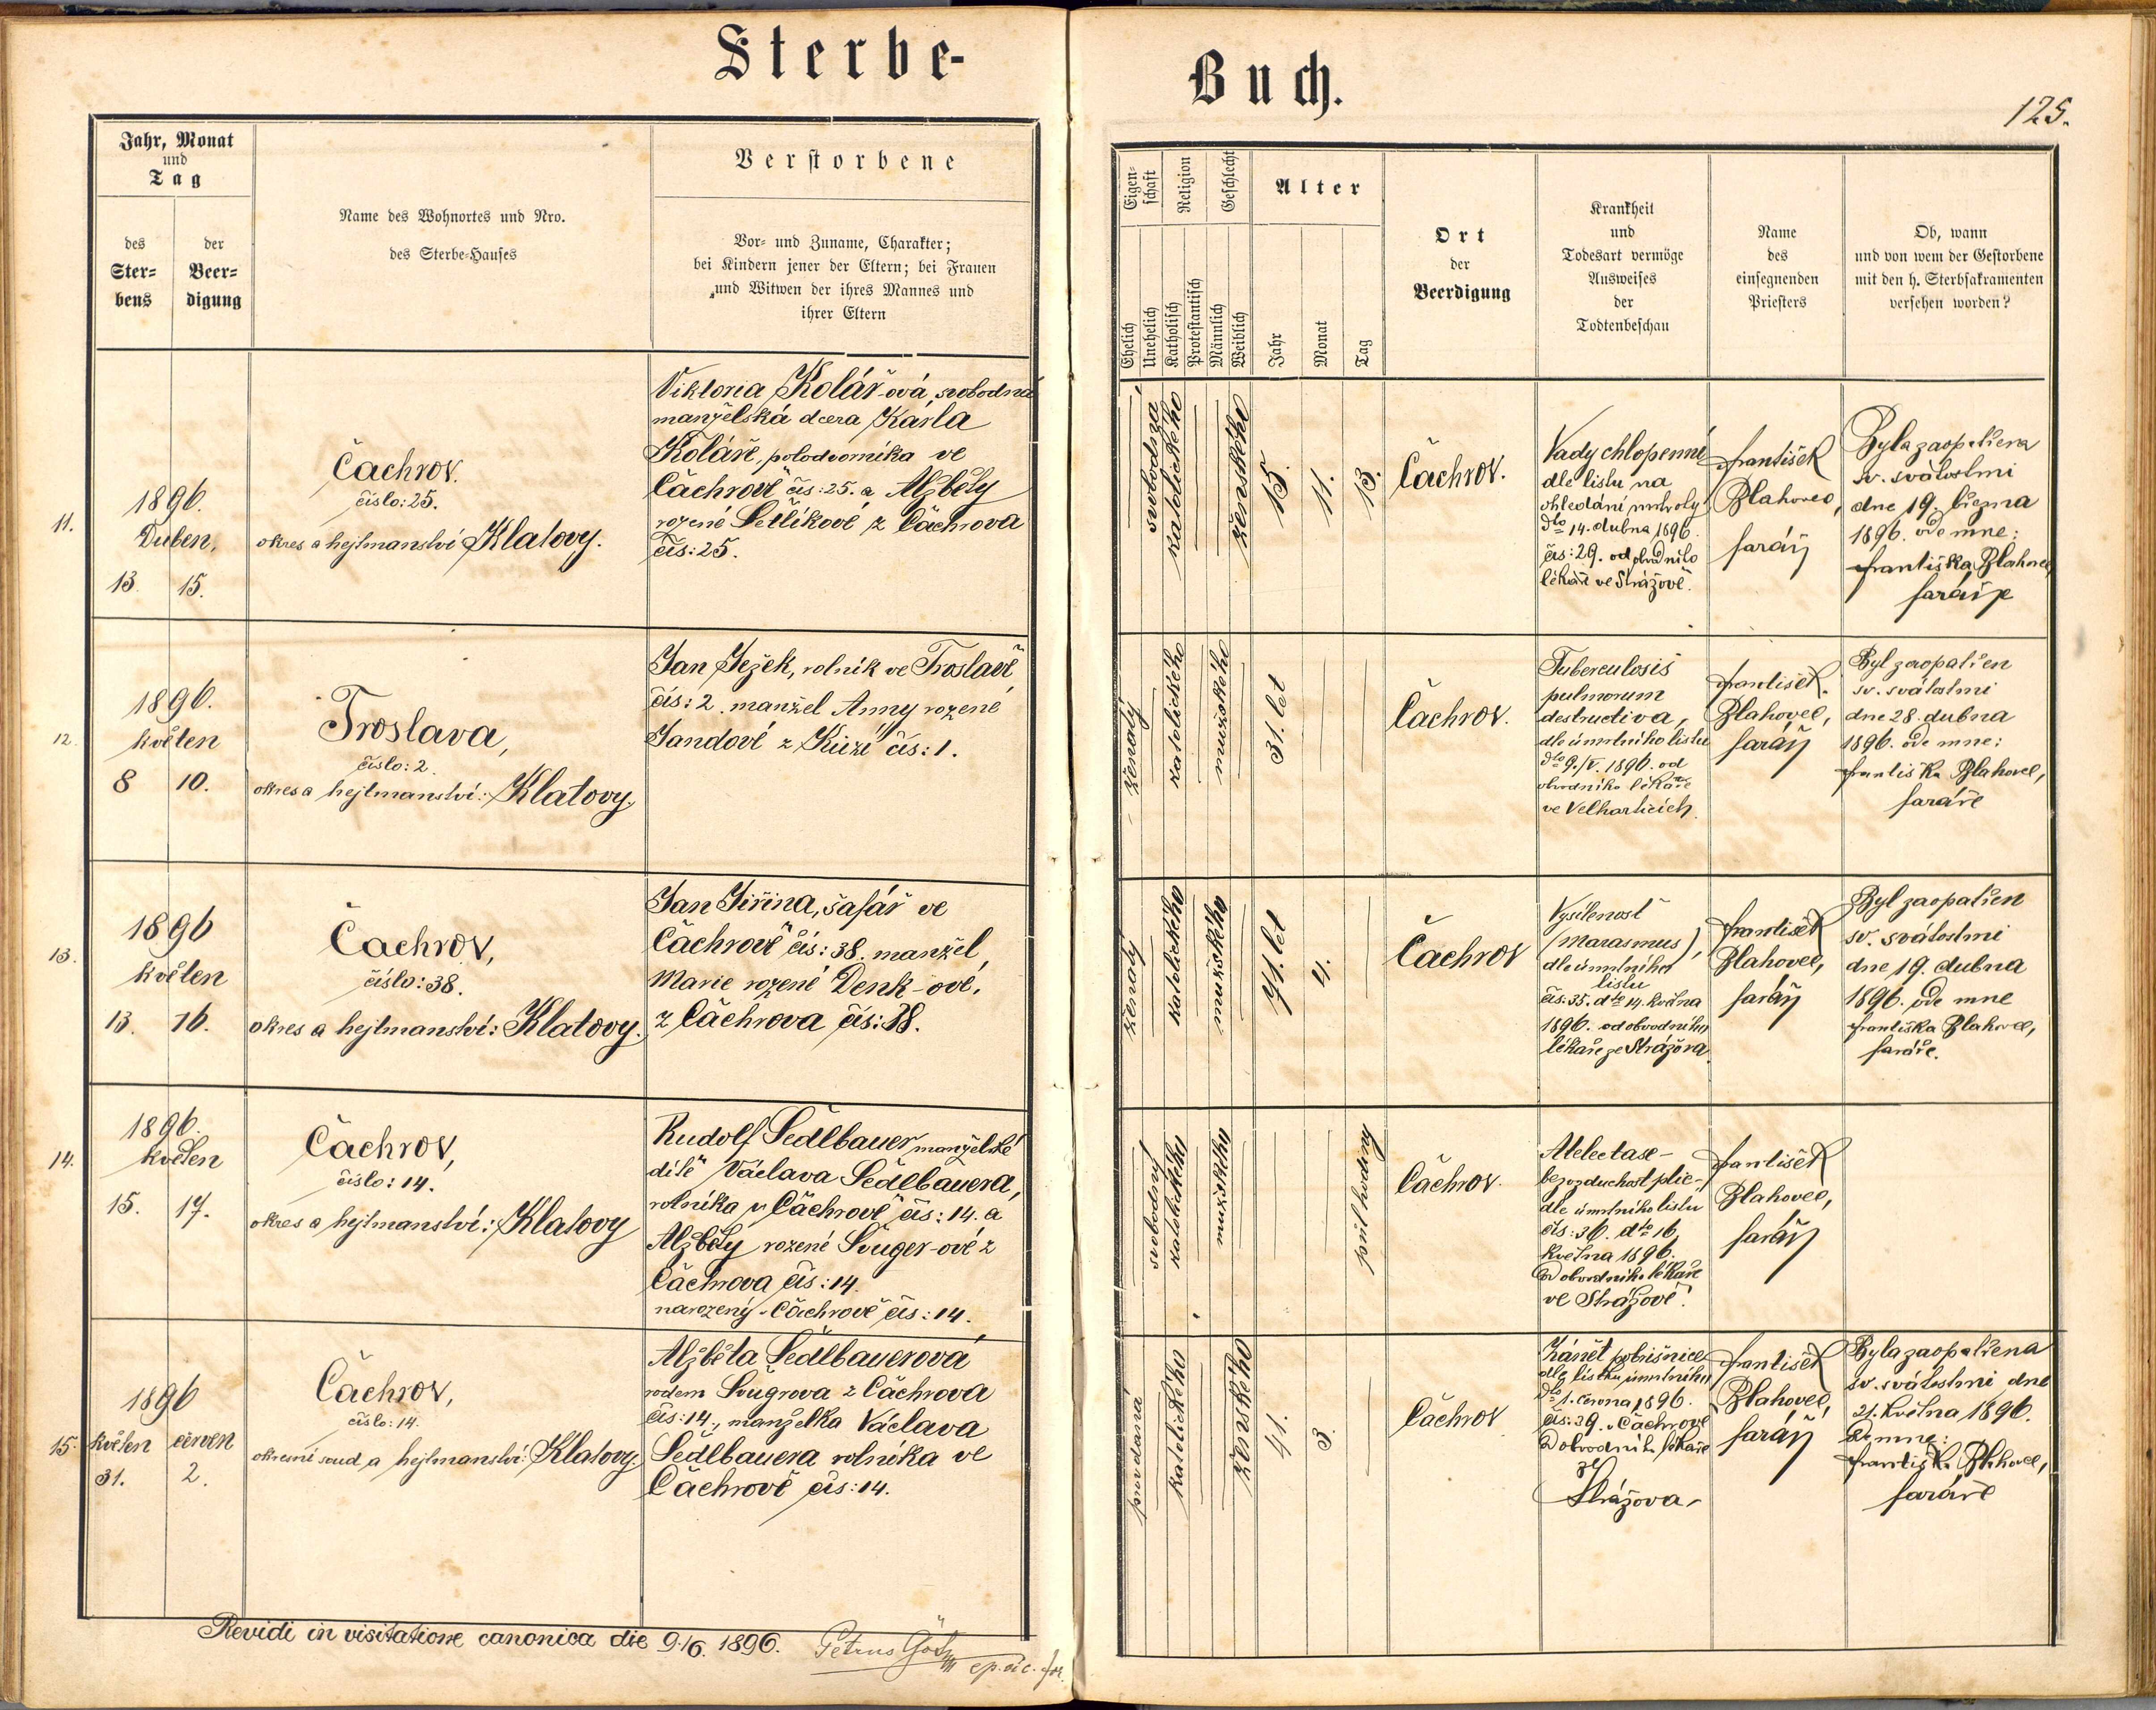 Sterbe-
Buch.
125.
Jahr, Monat
und
Tag
des
Ster-
bens
der
Beer-
digung
Name des Wohnortes und Nro.
des Sterbe-Hauses
Verstorbene
Vor- und Zuname, Charakter;
bei Kindern jener der Eltern; bei Frauen
und Witwen der ihres Mannes und
ihrer Eltern
Eigen-
schaft
Religion
Geschlecht
Alter
Ehelich
Unehelich
Katholisch
Protestantisch
Männlich
Weiblich
Jahr
Monat
Tag
Ort
der
Beerdigung
Krankheit
und
Todesart vermöge
Ausweises
der
Todtenbeschau
Name
des
einsegnenden
Priesters
Ob, wann
und von wem der Gestorbene
mit den h. Sterbsakramenten
versehen worden?
11.
1896.
Duben,
13. 15.
Čachrov.
číslo: 25.
okres a hejtmanství Klatovy.
Viktoria Kolář-ová, svobodná
manželská dcera Karla
Koláře, polodvorníka ve
Čachrově čís: 25. a Alžběty
rozené Šetlíkové z Čachrova
čís: 25.
svobodná
katolického
ženského
15.
11.
13.
Čachrov.
Vady chlopenní
dle listu na
ohledání mrtvoly
dto 14. dubna 1896.
čís: 29. od obvodního
lékaře ve Strážově.
František
Blahovec,
farář
Byla zaopatřena
sv. svátostmi
dne 19. března
1896. ode mne:
Františka Blahovec,
faráře
12.
1896.
květen
8 10.
Troslava,
číslo: 2.
okres a hejtmanství: Klatovy.
Jan Ježek, rolník ve Troslavě
čís: 2. manžel Anny rozené
Jandové z čís: 1.
ženatý
katolického
mužského
31. let
Čachrov.
Tuberculosis
pulmorum
destructiva,
dle úmrtního listu
dto 9./V. 1896. od
obvodního lékaře
ve Velharticích.
František
Blahovec,
farář
Byl zaopatřen
sv. svátostmi
dne 28. dubna
1896. ode mne:
Františka Blahovec,
faráře
13.
1896
květen
13. 16.
Čachrov,
číslo: 38.
okres a hejtmanství: Klatovy.
Jan Jiřina, šafář ve
Čachrově čís: 38. manžel
Marie rozené Denk-ové,
z Čachrova čís: 38.
ženatý
katolického
mužského
71. let
4.
Čachrov
Vysílenost
(Marasmus),
dle úmrtního
listu
čís: 35. dto 14. května
1896. od obvodního
lékaře ze Strážova.
František
Blahovec,
farář
Byl zaopatřen
sv. svátostmi
dne 19. dubna
1896. ode mne
Františka Blahovec,
faráře.
14.
1896.
květen
15. 17.
Čachrov,
číslo: 14.
okres a hejtmanství: Klatovy
Rudolf Sedlbauer manželské
dítě Václava Sedlbauera,
rolníka v Čachrově čís: 14. a
Alžběty rozené Šuger-ové z
Čachrova čís: 14.
narozený v Čachrově čís: 14.
svobodný
katolického
mužského
půl hodiny
Čachrov.
Atelectase-
bezvzduchost plic-
dle úmrtního listu
čís: 36. dto 16.
května 1896.
od obvodního lékaře
ve Strážově.
František
Blahovec,
farář
15.
1896
květen červen
31. 2.
Čachrov,
číslo: 14.
okresní soud a hejtmanství: Klatovy.
Alžběta Sedlbauerová
rodem Šugrova z Čachrova
čís: 14., manželka Václava
Sedlbauera rolníka ve
Čachrově čís: 14.
provdaná
katolického
ženského
41.
3.
Čachrov
Zánět pobřišnice
dle listu úmrtního
dto 1. června 1896.
čís: 39. v Čachrově
od obvodního lékaře
ze
Strážova.
František
Blahovec,
farář
Byla zaopatřena
sv. svátostmi dne
21. května 1896.
ode mne:
Františka Blahovec,
faráře
Revidi in visitatione canonica die 9./6. 1896. Petrus